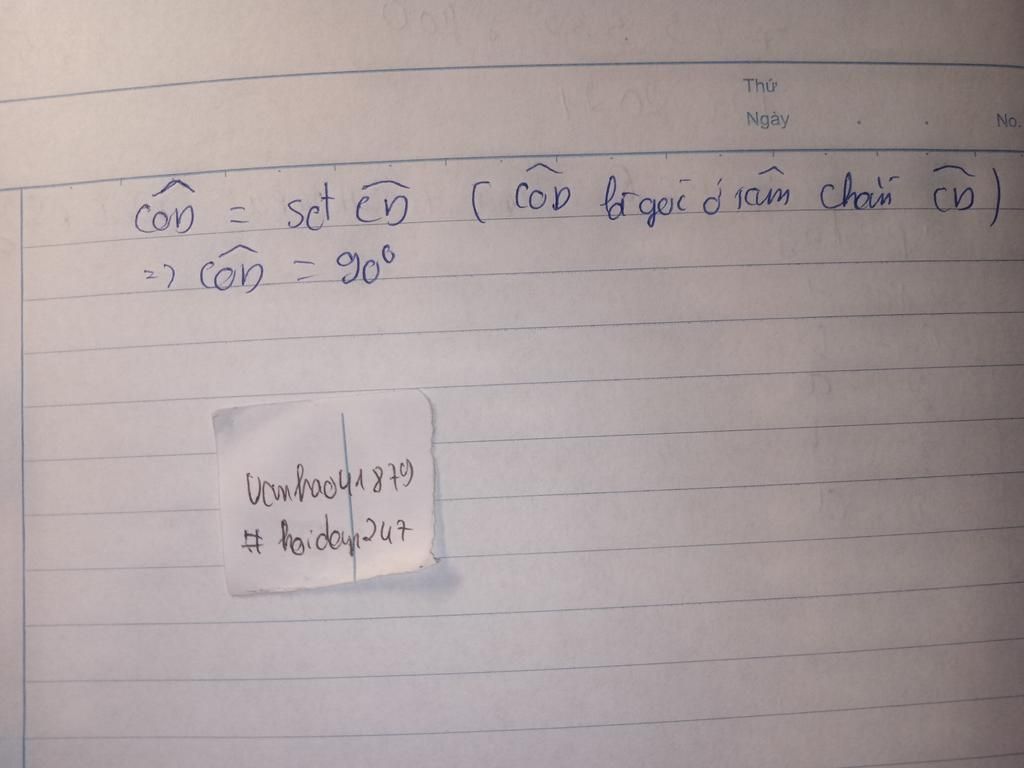 Thứ
Ngày . . No.
$\widehat{COD}$ = sđt $\widehat{CD}$ ( $\widehat{COD}$ là góc ở tâm chắn $\widehat{CD}$ )
=> $\widehat{COD}$ = 90⁰
Vanhao41879
# hoidap247